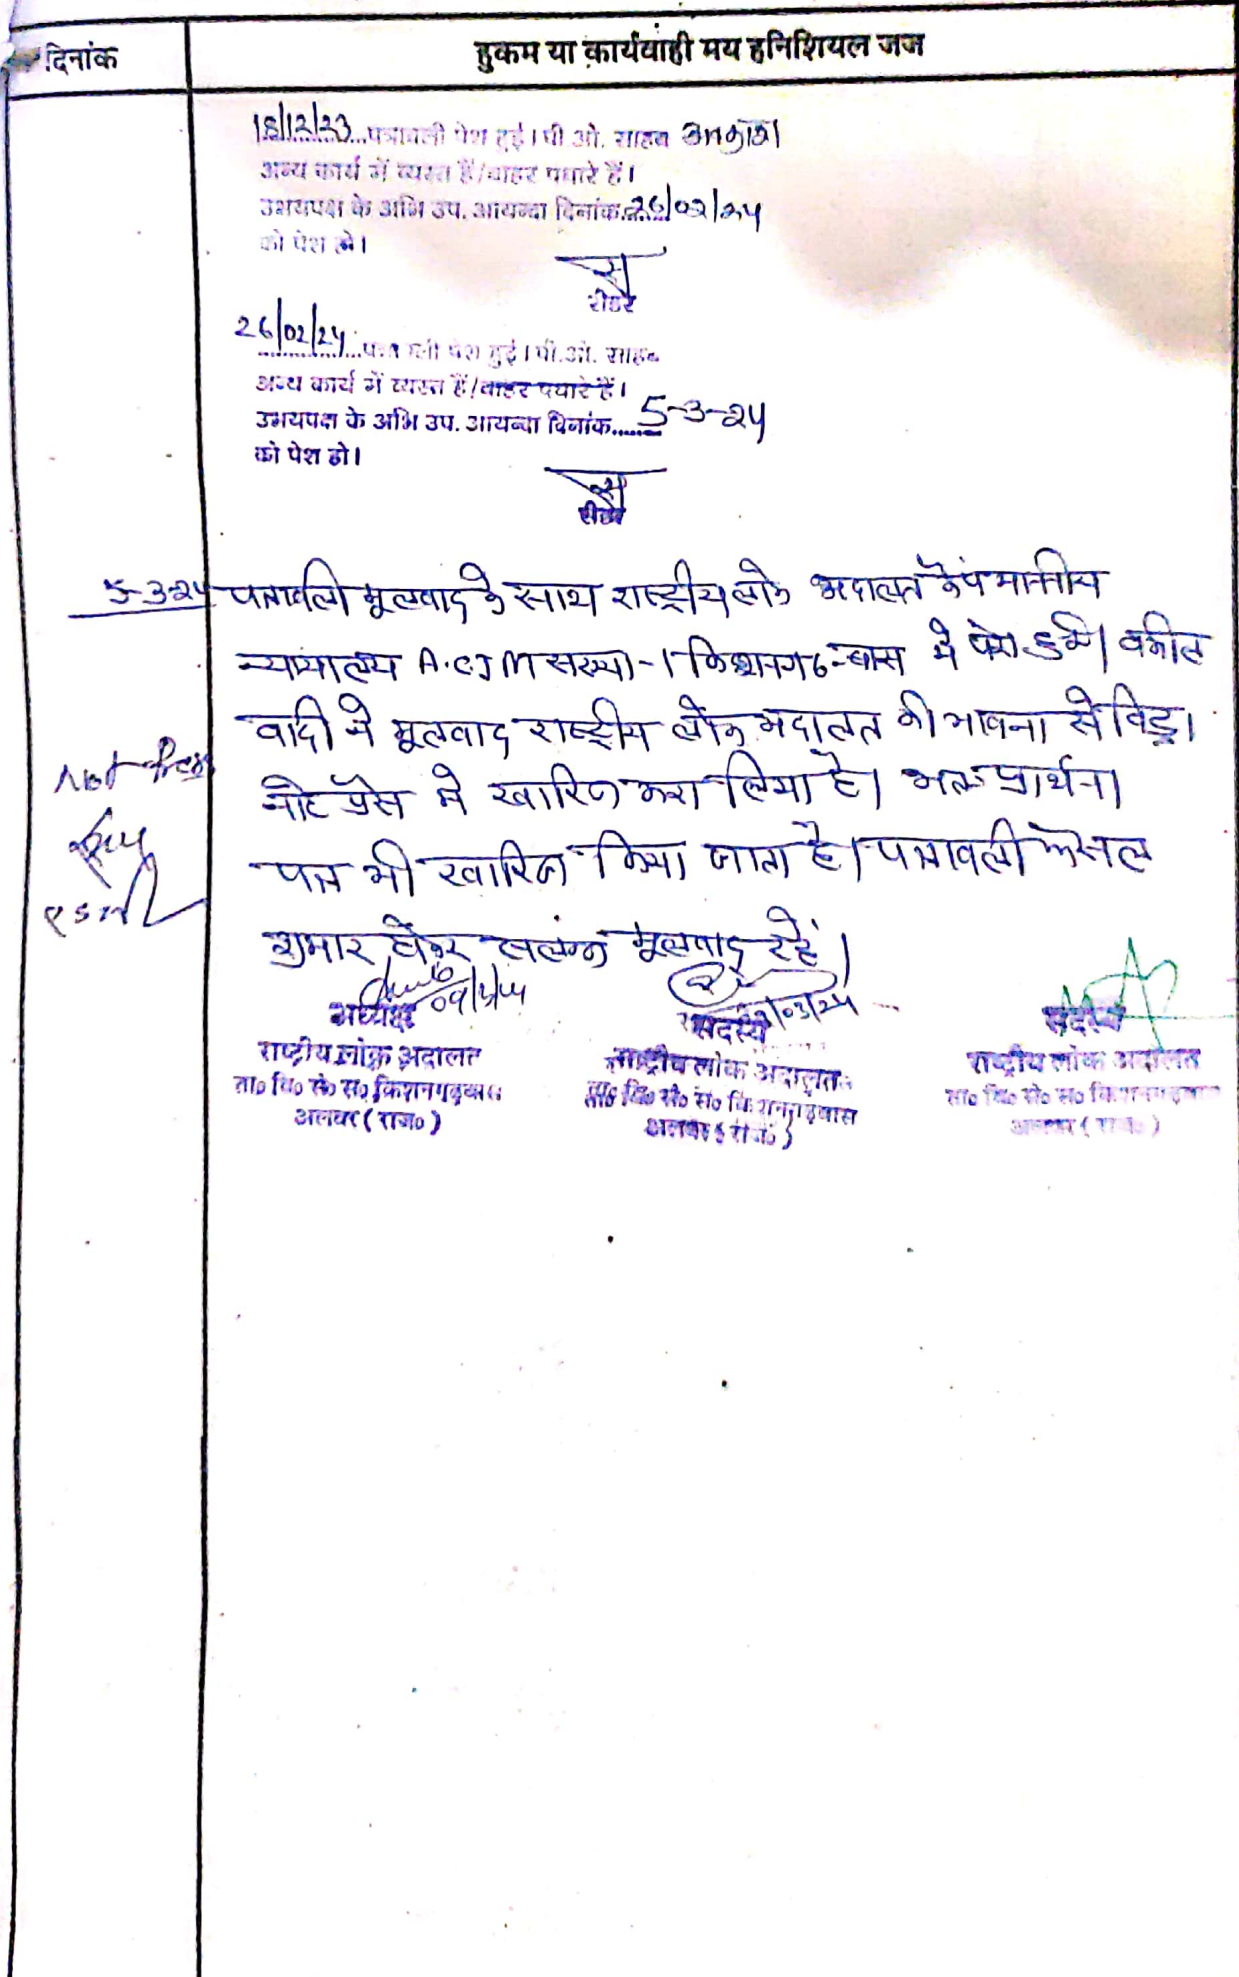 दिनांक
हुकम या कार्यवाही मय इनिशियल जज
18/12/23 पत्रावली पेश हुई। पी.ओ. साहब अवकाश
अन्य कार्य में व्यस्त हैं/बाहर पधारे हैं।
उभयपक्ष के अभि उप. आयन्दा दिनांक 26/02/24
को पेश हो।
रीडर
26/02/24 पत्रावली पेश हुई। पी.ओ. साहब
अन्य कार्य में व्यस्त हैं/बाहर पधारे हैं।
उभयपक्ष के अभि उप. आयन्दा दिनांक......5-3-24
को पेश हो।
रीडर
5-3-24 पत्रावली मूलवाद के साथ राष्ट्रीय लोक अदालत कैंप माननीय
न्यायालय A.C.J.M संख्या-1 किशनगढ-बास में पेश हुयी। वकील
वादी ने मूलवाद राष्ट्रीय लोक अदालत की भावना से विड्रा
नोट प्रेस में खारिज करा लिया है। अतः प्रार्थना
पत्र भी खारिज किया जाता है। पत्रावली फैसल
शुमार होकर संलग्न मूलवाद रहे।
Not Press
अध्यक्ष
राष्ट्रीय लोक अदालत
ता० वि० से० स० किशनगढ़बास
अलवर (राज०)
सदस्य
राष्ट्रीय लोक अदालत
ता० वि० से० सं० किशनगढ़बास
अलवर (राज०)
सदस्य
राष्ट्रीय लोक अदालत
ता० वि० से० स० किशनगढ़बास
अलवर (राज०)